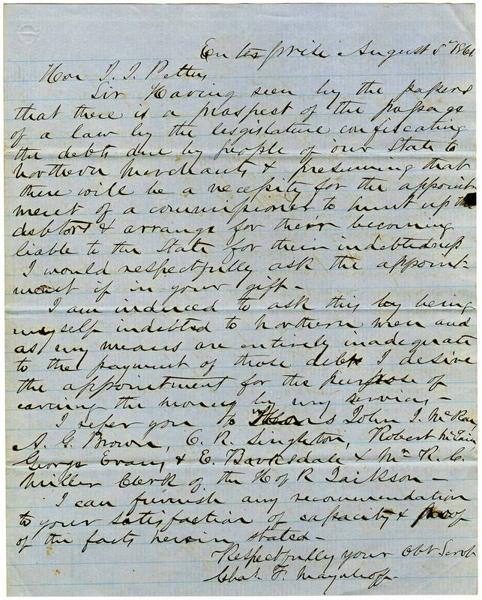 Enterprise August 5th 1861
Hon J. J. Pettus
Sir Having seen by the papers
that there is a prospect of the passage
of a law by the Legislature confiscating
the debts due by people of our State to
Northern Merchants & presuming that
there will be a necessity for the appoint-
ment of a commissioner to hunt up the
debtors & arrange for their becoming
liable to the State for their indebtedness
I would respectfully ask the appoint-
ment if in your gift-
I am induced to ask this by being
myself indebted to Northern men and
as my means are entirely inadequate
to the payment of those debts I desire
the appointment for the purpose of
earning the money by my services-
I refer you to Hons John J. McRae
A. G. Brown, O. R. Singleton, Robert
George Evans, & E. Barksdale & Mr R. C.
Miller Clerk of the H of R Jackson-
I can furnish any recommendation
to your satisfaction of capacity & proof
of the facts herein stated-
Respectfully your Obt Servt
Chas. F.